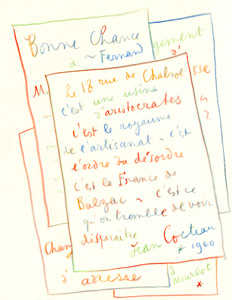 Bonne Chance
à ~ Fernand
Le 18 rue de Chabrol
c'est une usine
d'aristocrates
C'est le royaume
de l'artisanat - c'est
l'ordre du désordre
c'est la France de
Balzac ~ c'est ce
qu'on tremble de voir
disparaître
Jean Cocteau
* 1960
d'adresse
Mourlot
*